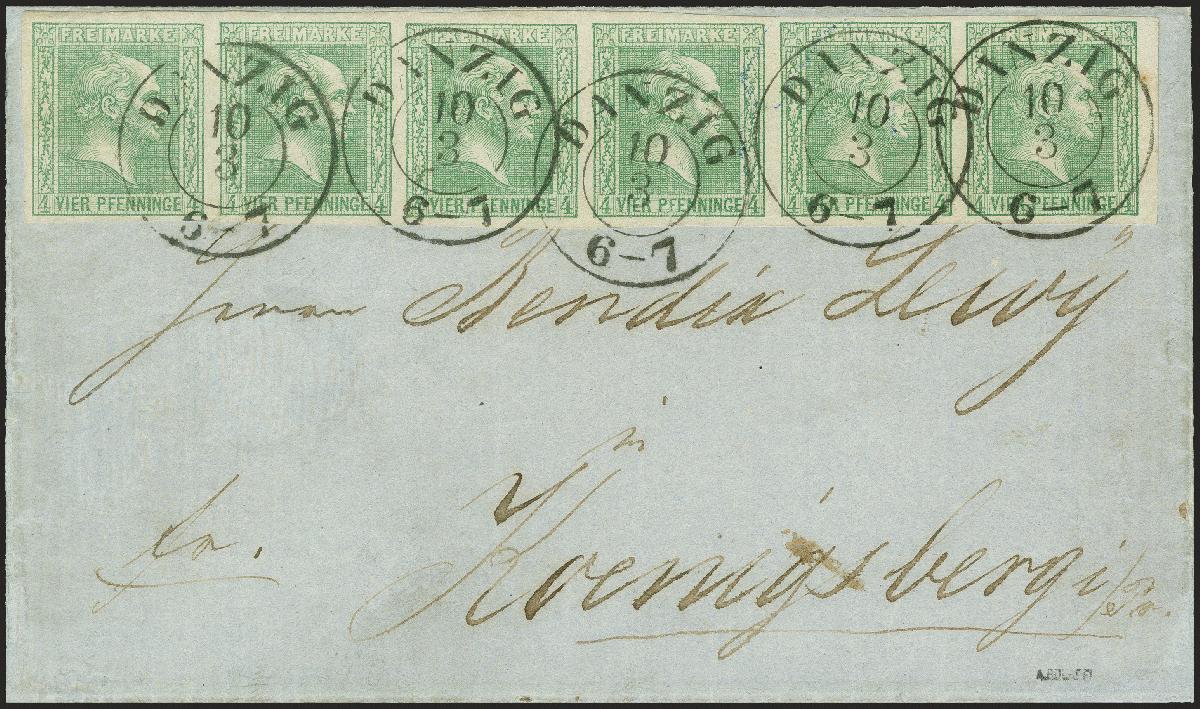 FREIMARKE FREIMARKE FREIMARKE FREIMARKE FREIMARKE FREIMARKE
4 VIER PFENNINGE 4 4 VIER PFENNINGE 4 4 VIER PFENNINGE 4 4 VIER PFENNINGE 4 4 VIER PFENNINGE 4 4 VIER PFENNINGE 4
DANZIG 10 3 6-7
DANZIG 10 3 6-7
DANZIG 10 3 6-7
DANZIG 10 3 6-7
DANZIG 10 3 6-7
Herrn Bendix Lewy
in
fr. Koenigsberg i/Pr.